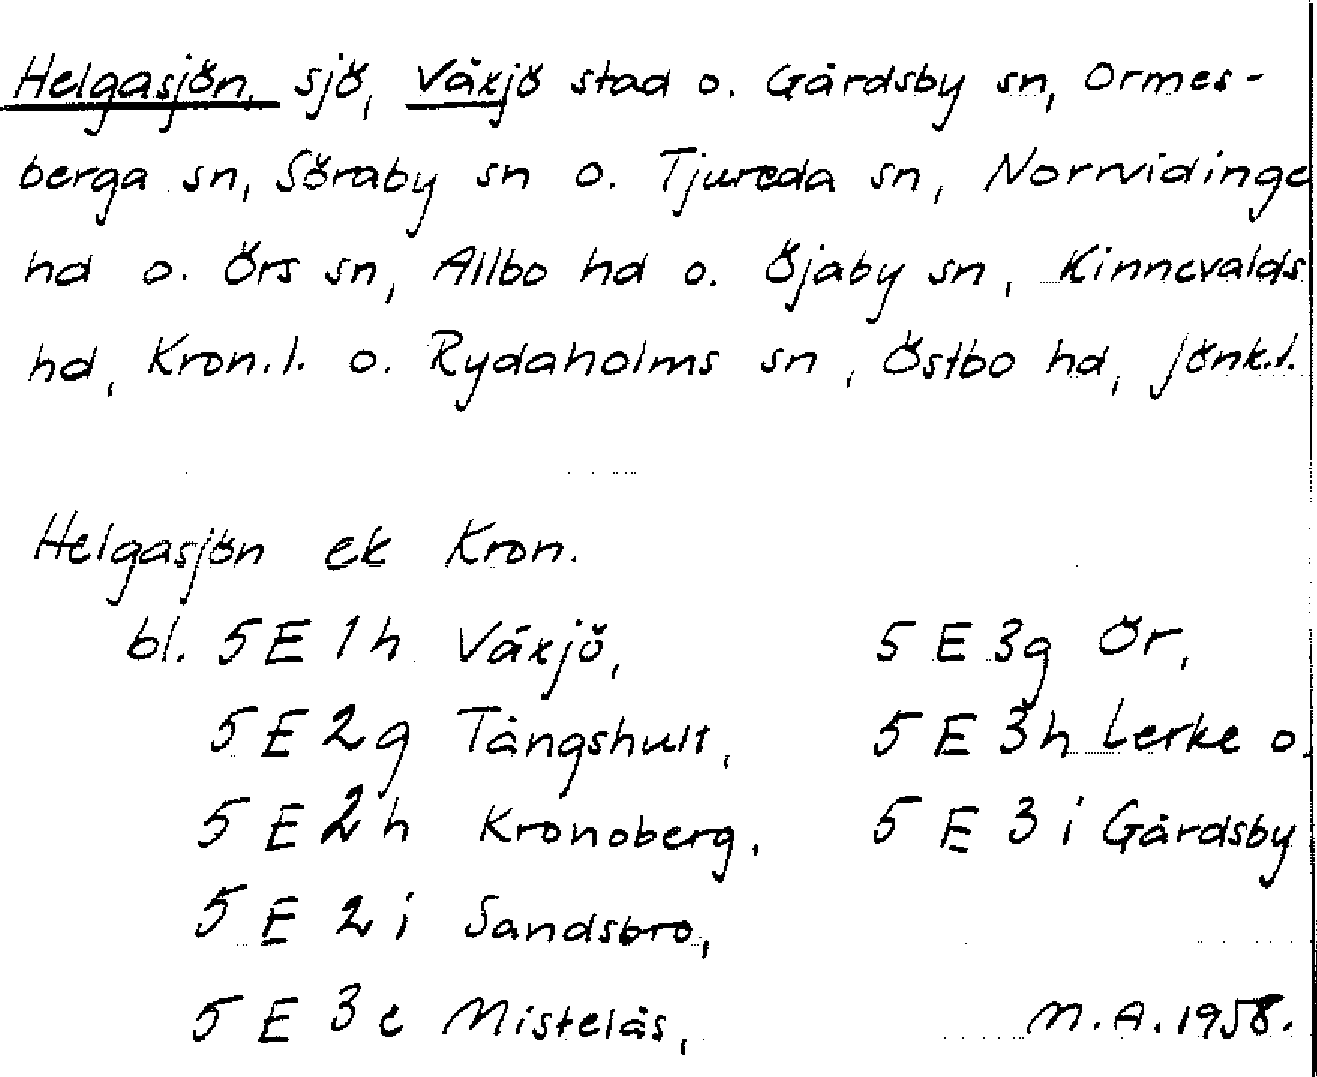 Helgasjön, sjö, Växjö stad o. Gårdsby sn, Ormes-
berga sn, Söraby sn o. Tjureda sn, Norrvidinge
hd o. Örs sn, Allbo hd o. Öjaby sn, Kinnevalds
hd, Kron.l. o. Rydaholms sn, Östbo hd, Jönk.l.
Helgasjön ek Kron.
bl. 5 E 1 h Växjö, 5 E 3g Ör,
5 E 2g Tångshult, 5 E 3h Lerke o.
5 E 2h Kronoberg, 5 E 3 i Gårdsby
5 E 2 i Sandsbro,
5 E 3 e Mistelås, M.A. 1958.